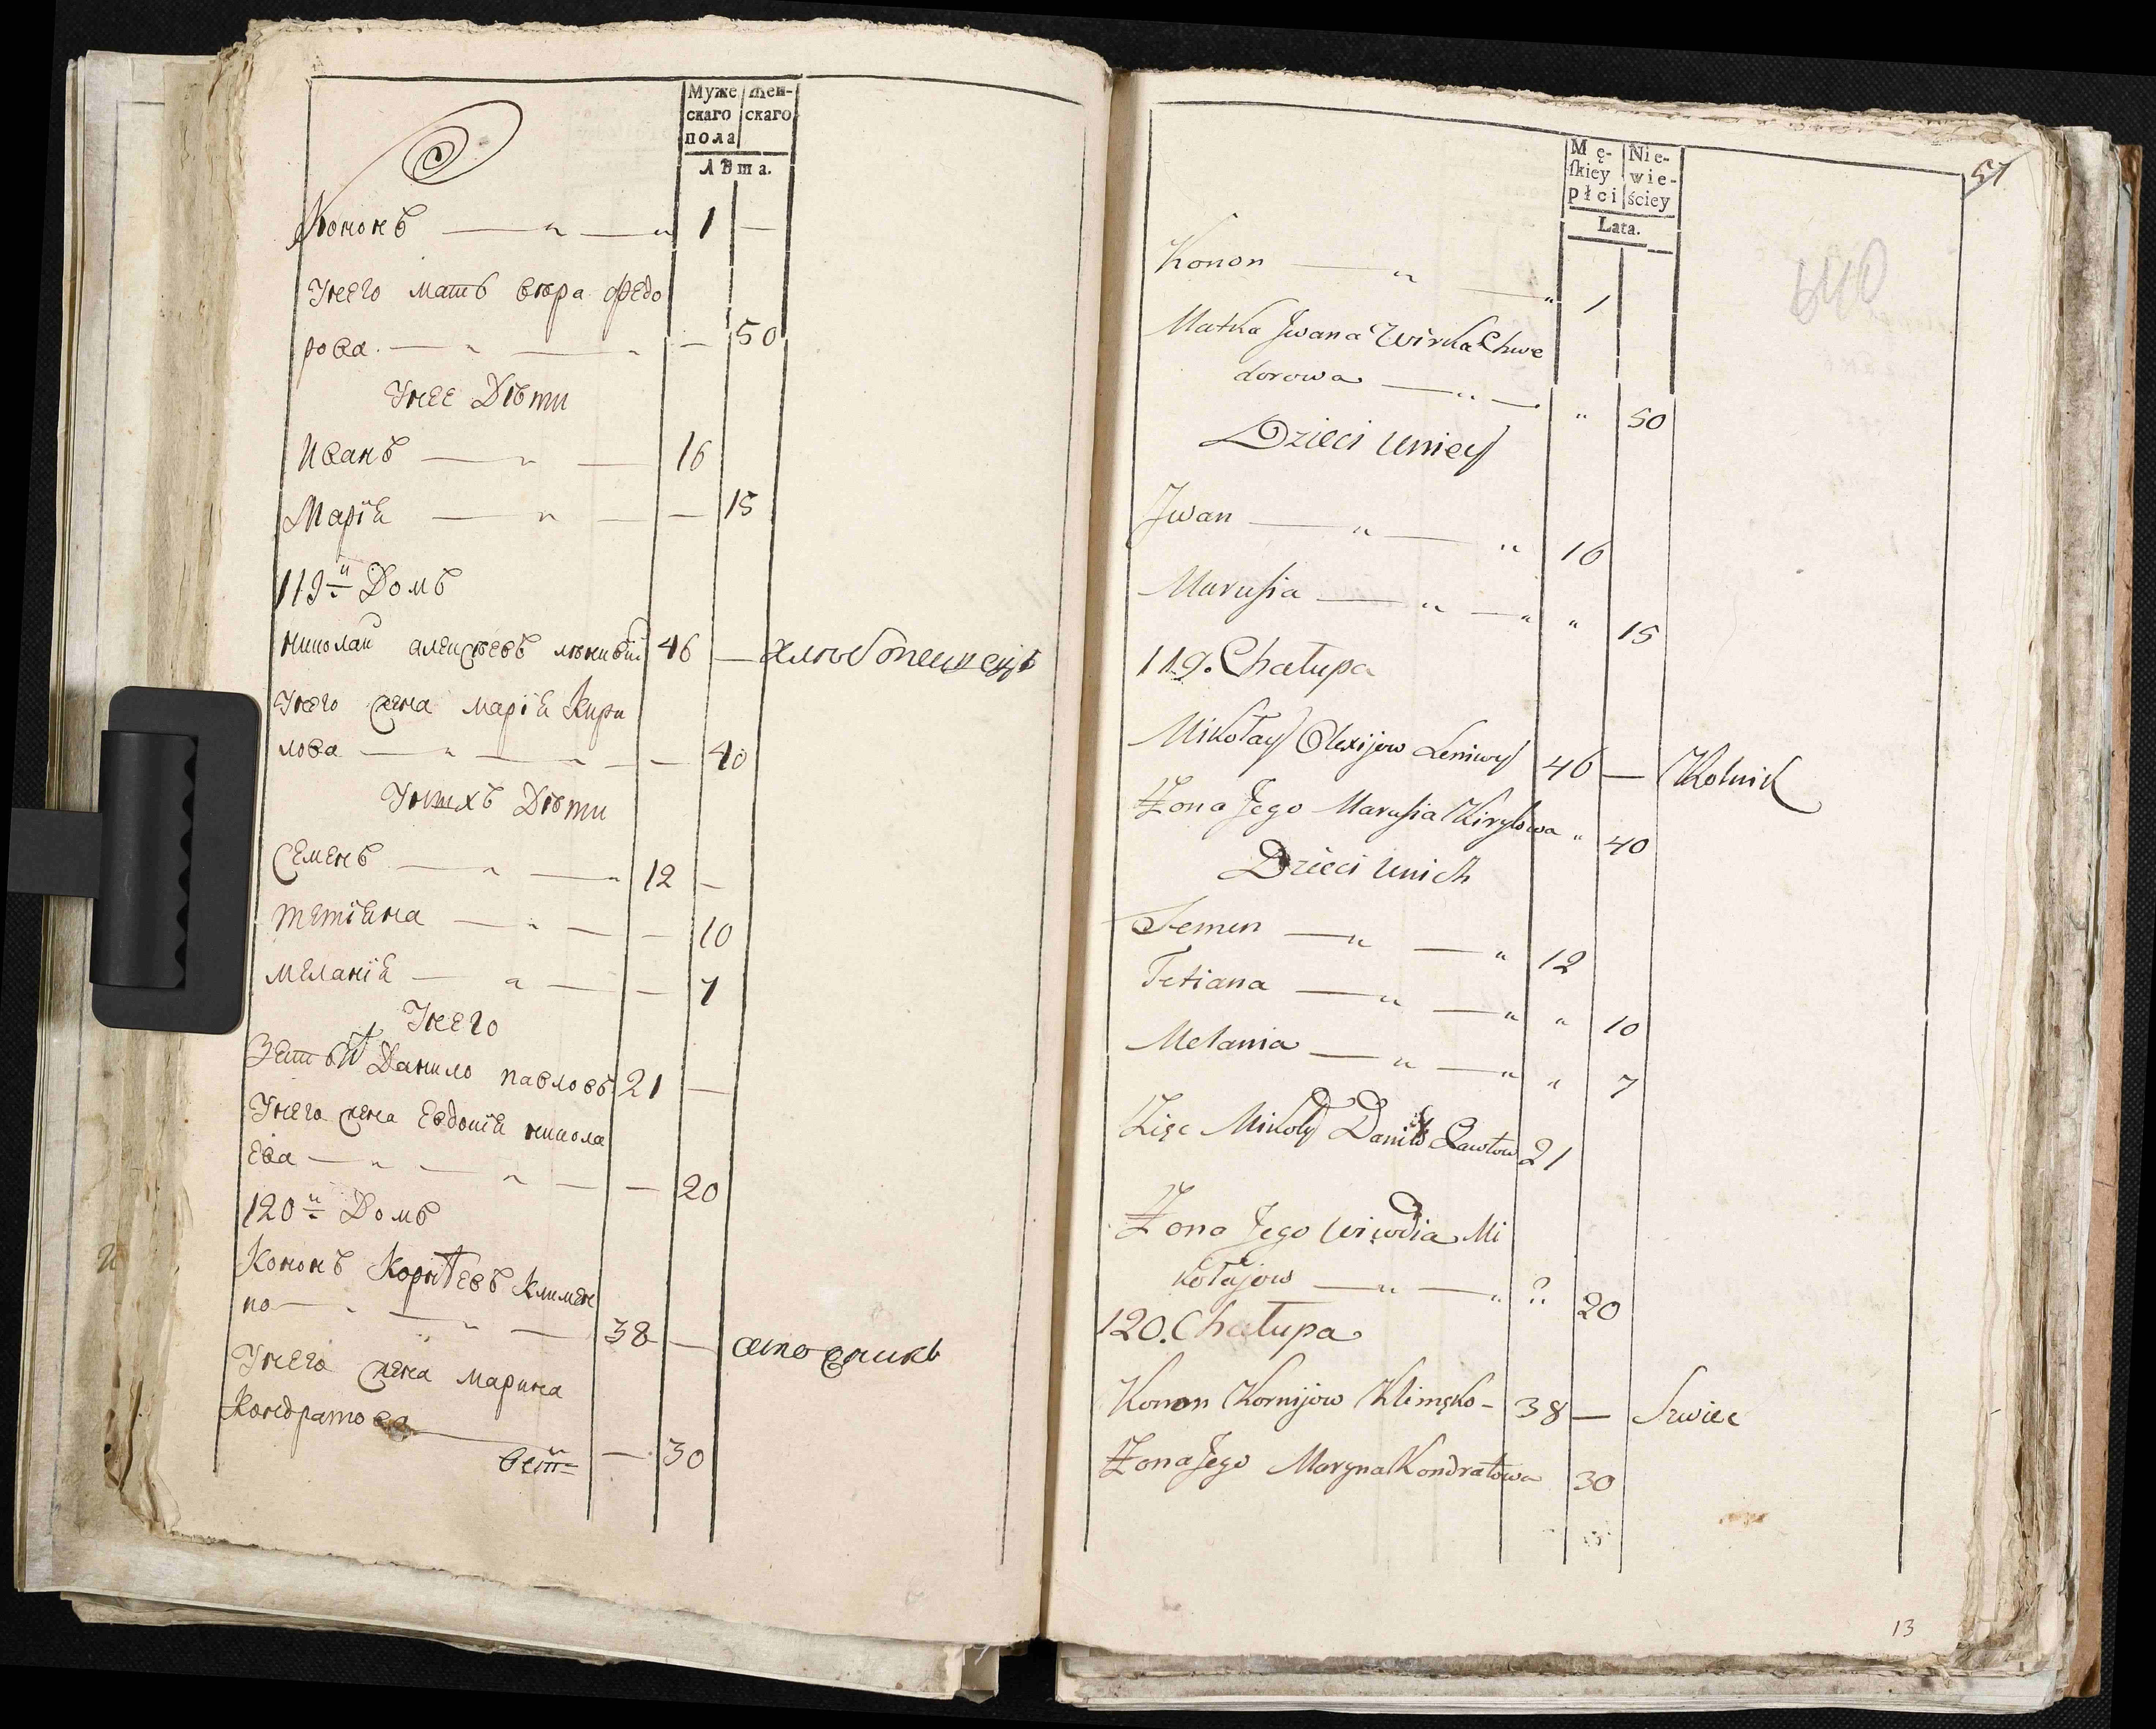 Муже
скаго
пола
Жен-
скаго
Лѣта.
Кононъ — „ — „ 1 —
Унего мать вѣра федо
рова. — „ — „ — 50
Унее Дѣти
Иванъ — „ — 16
Марія — „ — — 15
119й Домъ
николай алексѣевъ лѣнивій 46 —
Унего жена марія Кири
лова — „ — „ — — 40
Унихъ Дѣти
Семенъ — „ — „ 12 —
тетіяна — „ — — 10
меланія — „ — — 7
Унего
Зеть Данило павловъ 21 —
Унего жена Евдокія никола
ева — „ — „ — — 20
120й Домъ
Кононъ Корнѣевъ Климен
ко — „ — „ — 38 —
Унего жена марина
Кондратова — 30
Mę-
skiey
płci
Nie-
wie-
ściey
Lata.
51
Konon — „ — „ 1
Matka Jwana Wirka Chwe
dorowa — „ — „ 50
Dzieci Uniey
Jwan — „ — „ 16
Marusia — „ — „ „ 15
119. Chałupa
Mikołay Olexijow Leniwy 46 — Rolnik
Żona Jego Marusia Kiryłowa „ 40
Dzieci Unich
Semen — „ — „ 12
Tetiana — „ — „ „ 10
Melania — „ — „ „ 7
Zięc Mikoły Daniło Pawłow 21
Żona Jego Wiwdia Mi
kołajow — „ — „ 20
120. Chałupa
Konon Kornijow Klimęko - 38 — Szwiec
Żona Jego Maryna Kondratowa 30
13